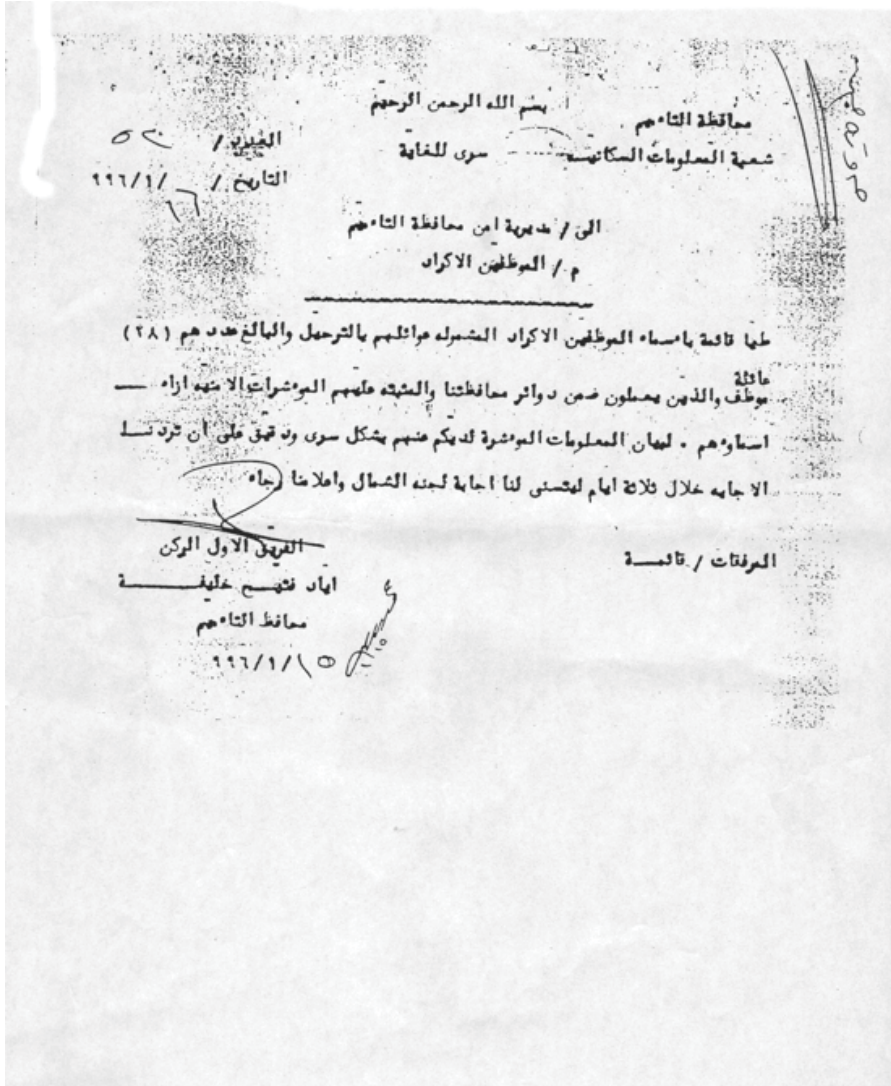 بسم الله الرحمن الرحيم
محافظة التاءميم
شعبة المعلومات السكانيـــه
سرى للغاية
العدد /
التاريخ / ١٦/١/٩٩٦
الى / مديرية امن محافظة التاءميم
م / الموظفين الاكراد
طيا قائمة باسماء الموظفين الاكراد المشموله عوائلهم بالترحيل والبالغ عددهم (٢٨)
عائلة
موظف والذين يعملون ضمن دوائر محافظتنا والمثبته عليهم الموءشرات الامنيه ازاء
اسماوءهم . لبيان المعلومات الموءشرة لديكم عنهم بشكل سرى ودقيق على أن تردنـــا
الاجابه خلال ثلاثة ايام ليتسنى لنا اجابة لجنه الشمال واعلامنا رجاء
الفريق الاول الركن
اياد فتيـــح خليفـــــــة
محافظ التاءميم
١٥/١/٩٩٦
المرفقات / قائمـــة